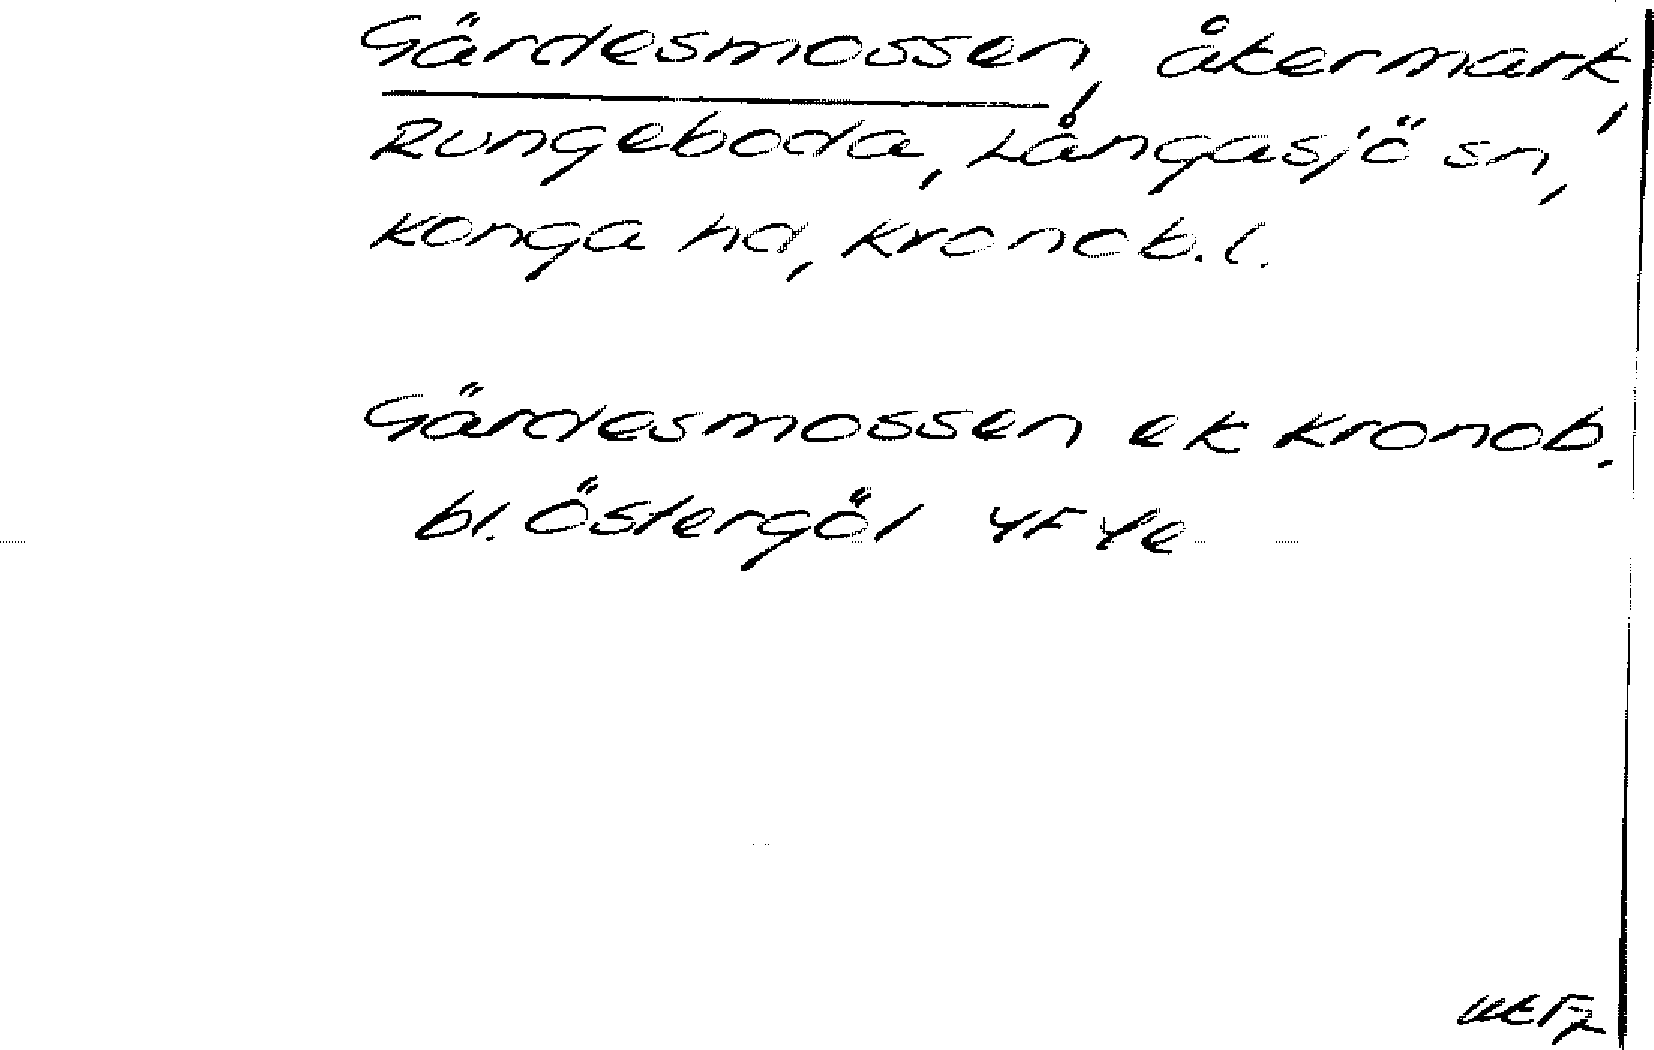 Gärdesmossen, åkermark,
Rungeboda, Långasjö sn,
Konga hd, Kronob. l.
Gärdesmossen ek Kronob.
bl. Östergöl 4F 4e